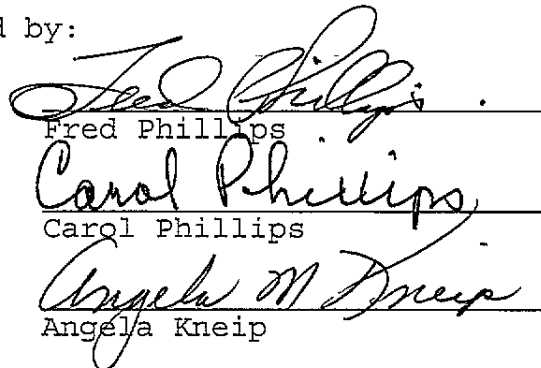 d by:
Fred Phillips
Fred Phillips
Carol Phillips
Carol Phillips
Angela M Kneip
Angela Kneip